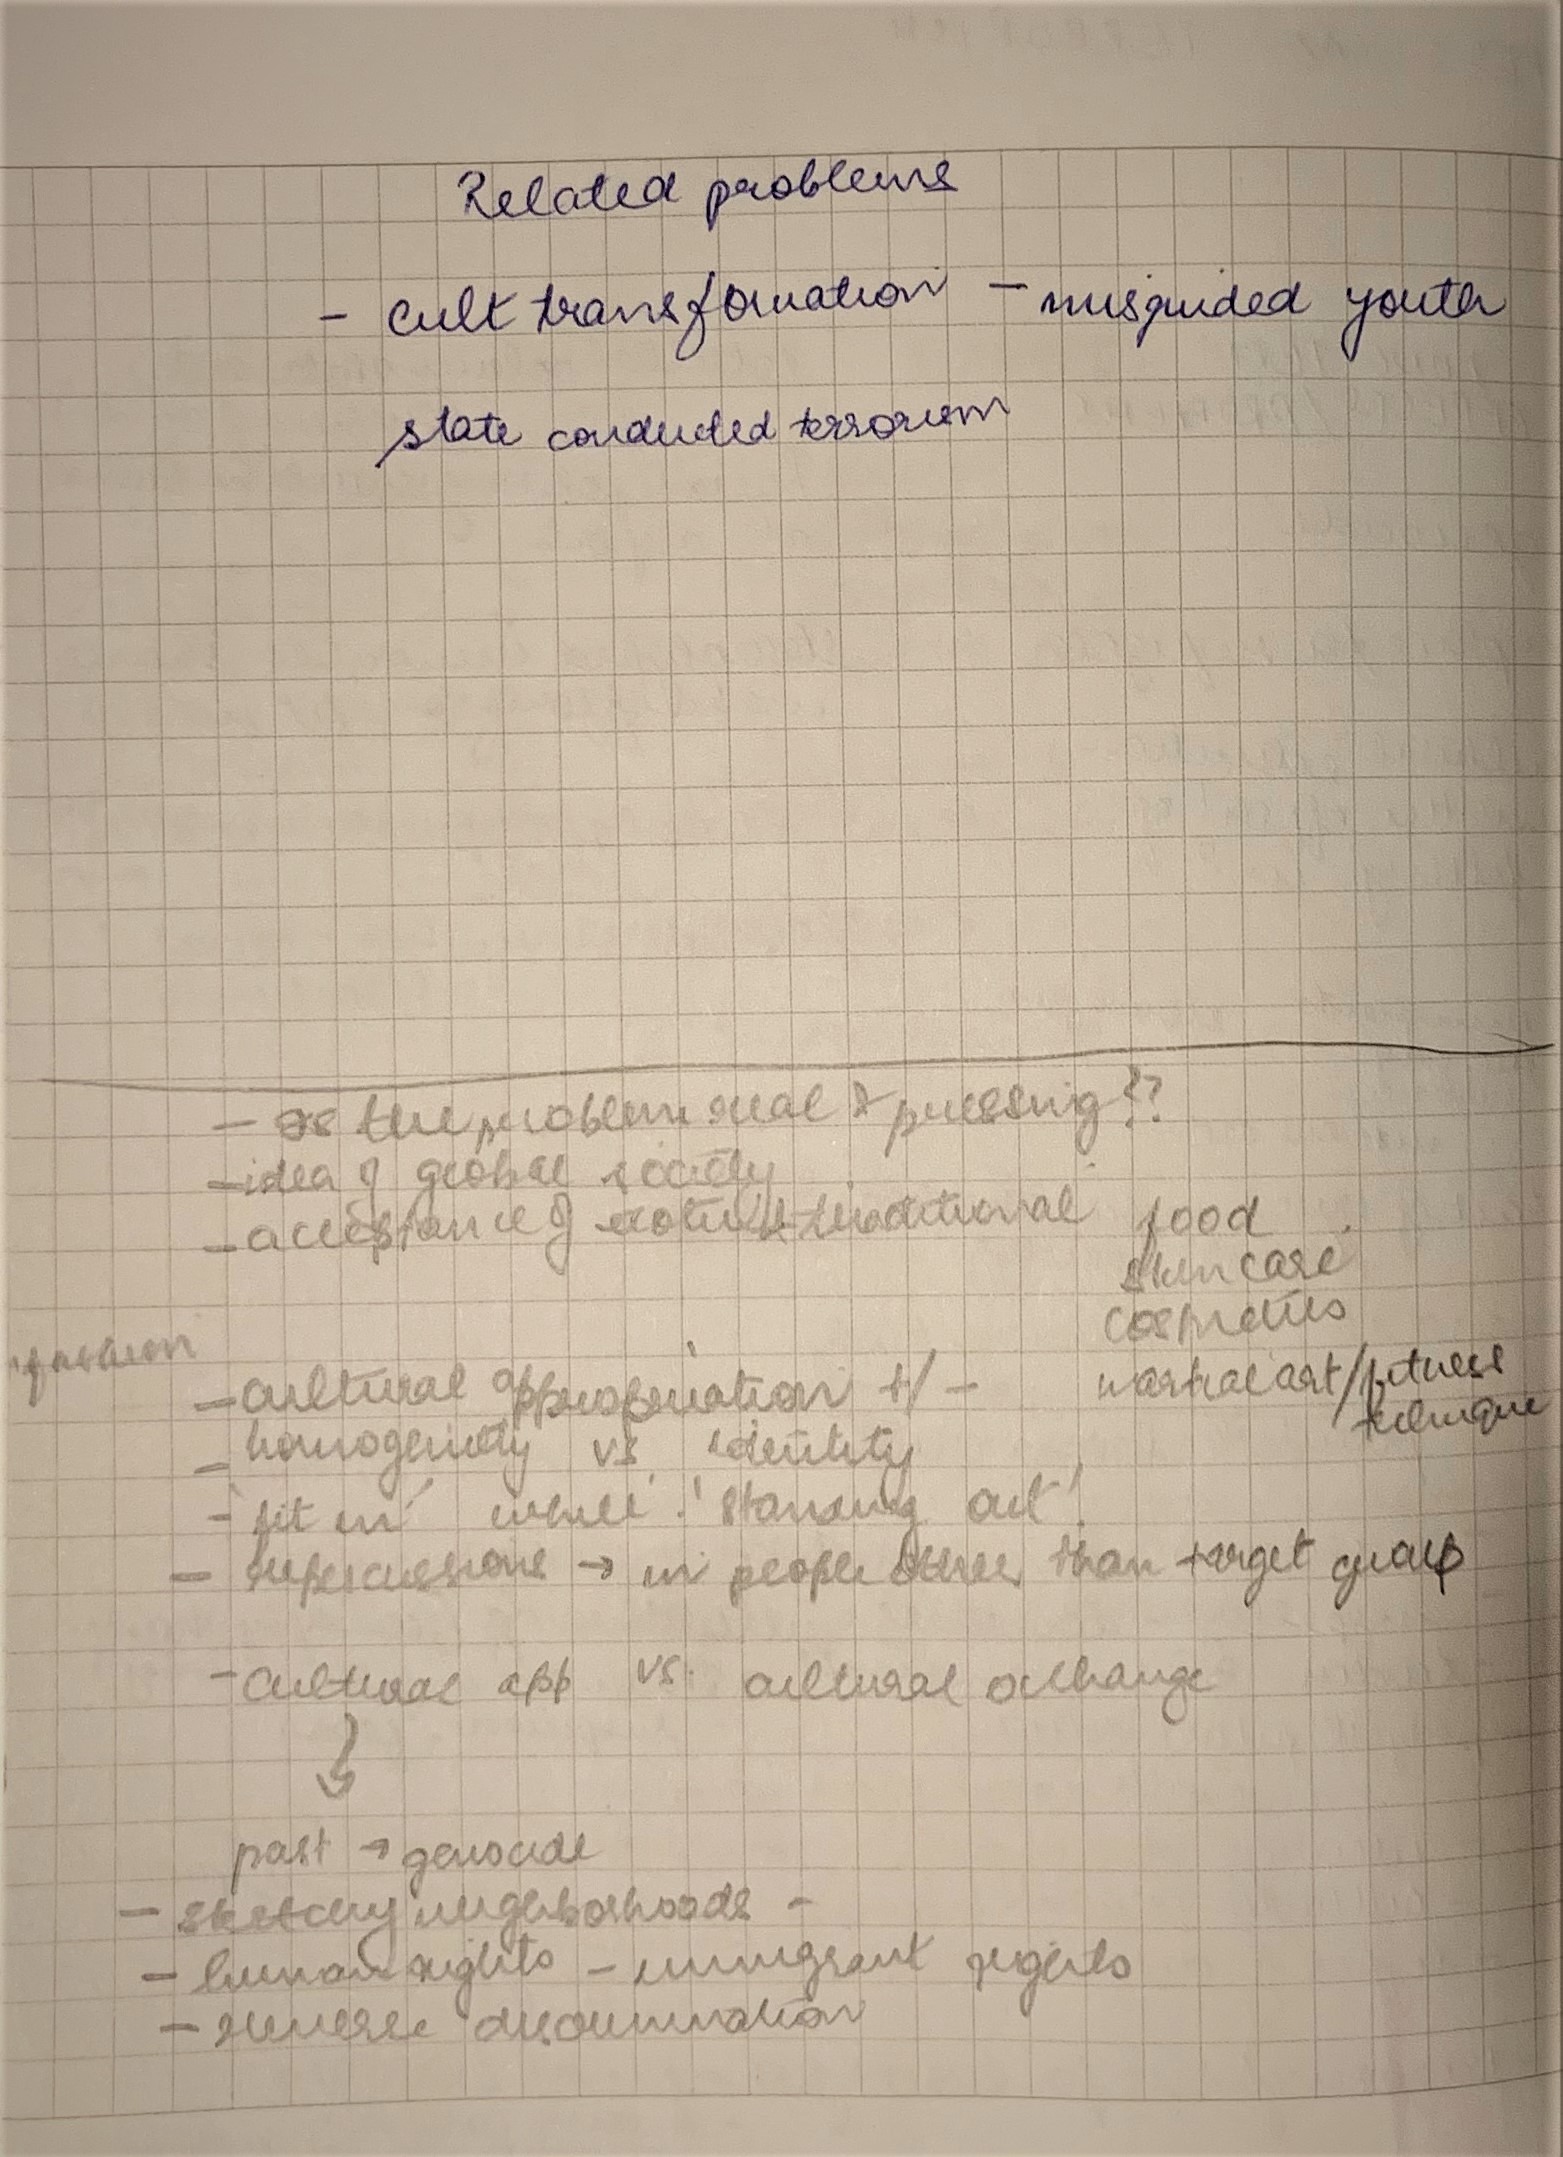 Related problems
- Cult transformation - misguided youth
state conducted terrorism
- Is the problem real & pressing??
- idea of global society
- acceptance of exotic & traditional food
skincare
cosmetics
- cultural appropriation +/- martial art/fitness
technique
- homogeneity vs. identity
- 'fit in' while 'standing out'
- repercussions → in people other than target group
- Cultural app vs. cultural exchange
past → genocide
- sketchy neighborhoods -
- human rights - immigrant rights
- reverse discrimination